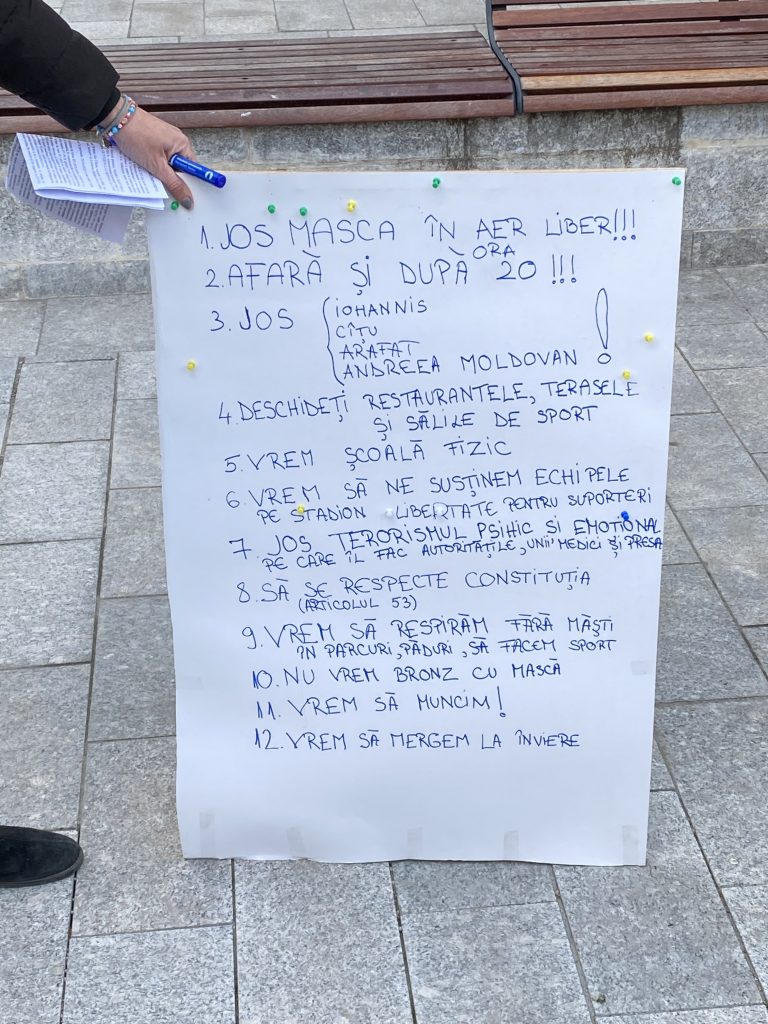 1. JOS MASCA ÎN AER LIBER!!!
2. AFARĂ ȘI DUPĂ ORA 20 !!!
3. JOS { IOHANNIS
CÎȚU
ARAFAT
ANDREEA MOLDOVAN !
4. DESCHIDEȚI RESTAURANTELE, TERASELE
ȘI SĂLILE DE SPORT
5. VREM ȘCOALĂ FIZIC
6. VREM SĂ NE SUSȚINEM ECHIPELE
PE STADION LIBERTATE PENTRU SUPORTERI
7. JOS TERORISMUL PSIHIC SI EMOȚIONAL
PE CARE ÎL FAC AUTORITĂȚILE, UNII MEDICI ȘI PRESA
8. SĂ SE RESPECTE CONSTITUȚIA
(ARTICOLUL 53)
9. VREM SĂ RESPIRĂM FĂRĂ MĂȘTI
ÎN PARCURI, PĂDURI, SĂ FACEM SPORT
10. NU VREM BRONZ CU MASCĂ
11. VREM SĂ MUNCIM!
12. VREM SĂ MERGEM LA ÎNVIERE